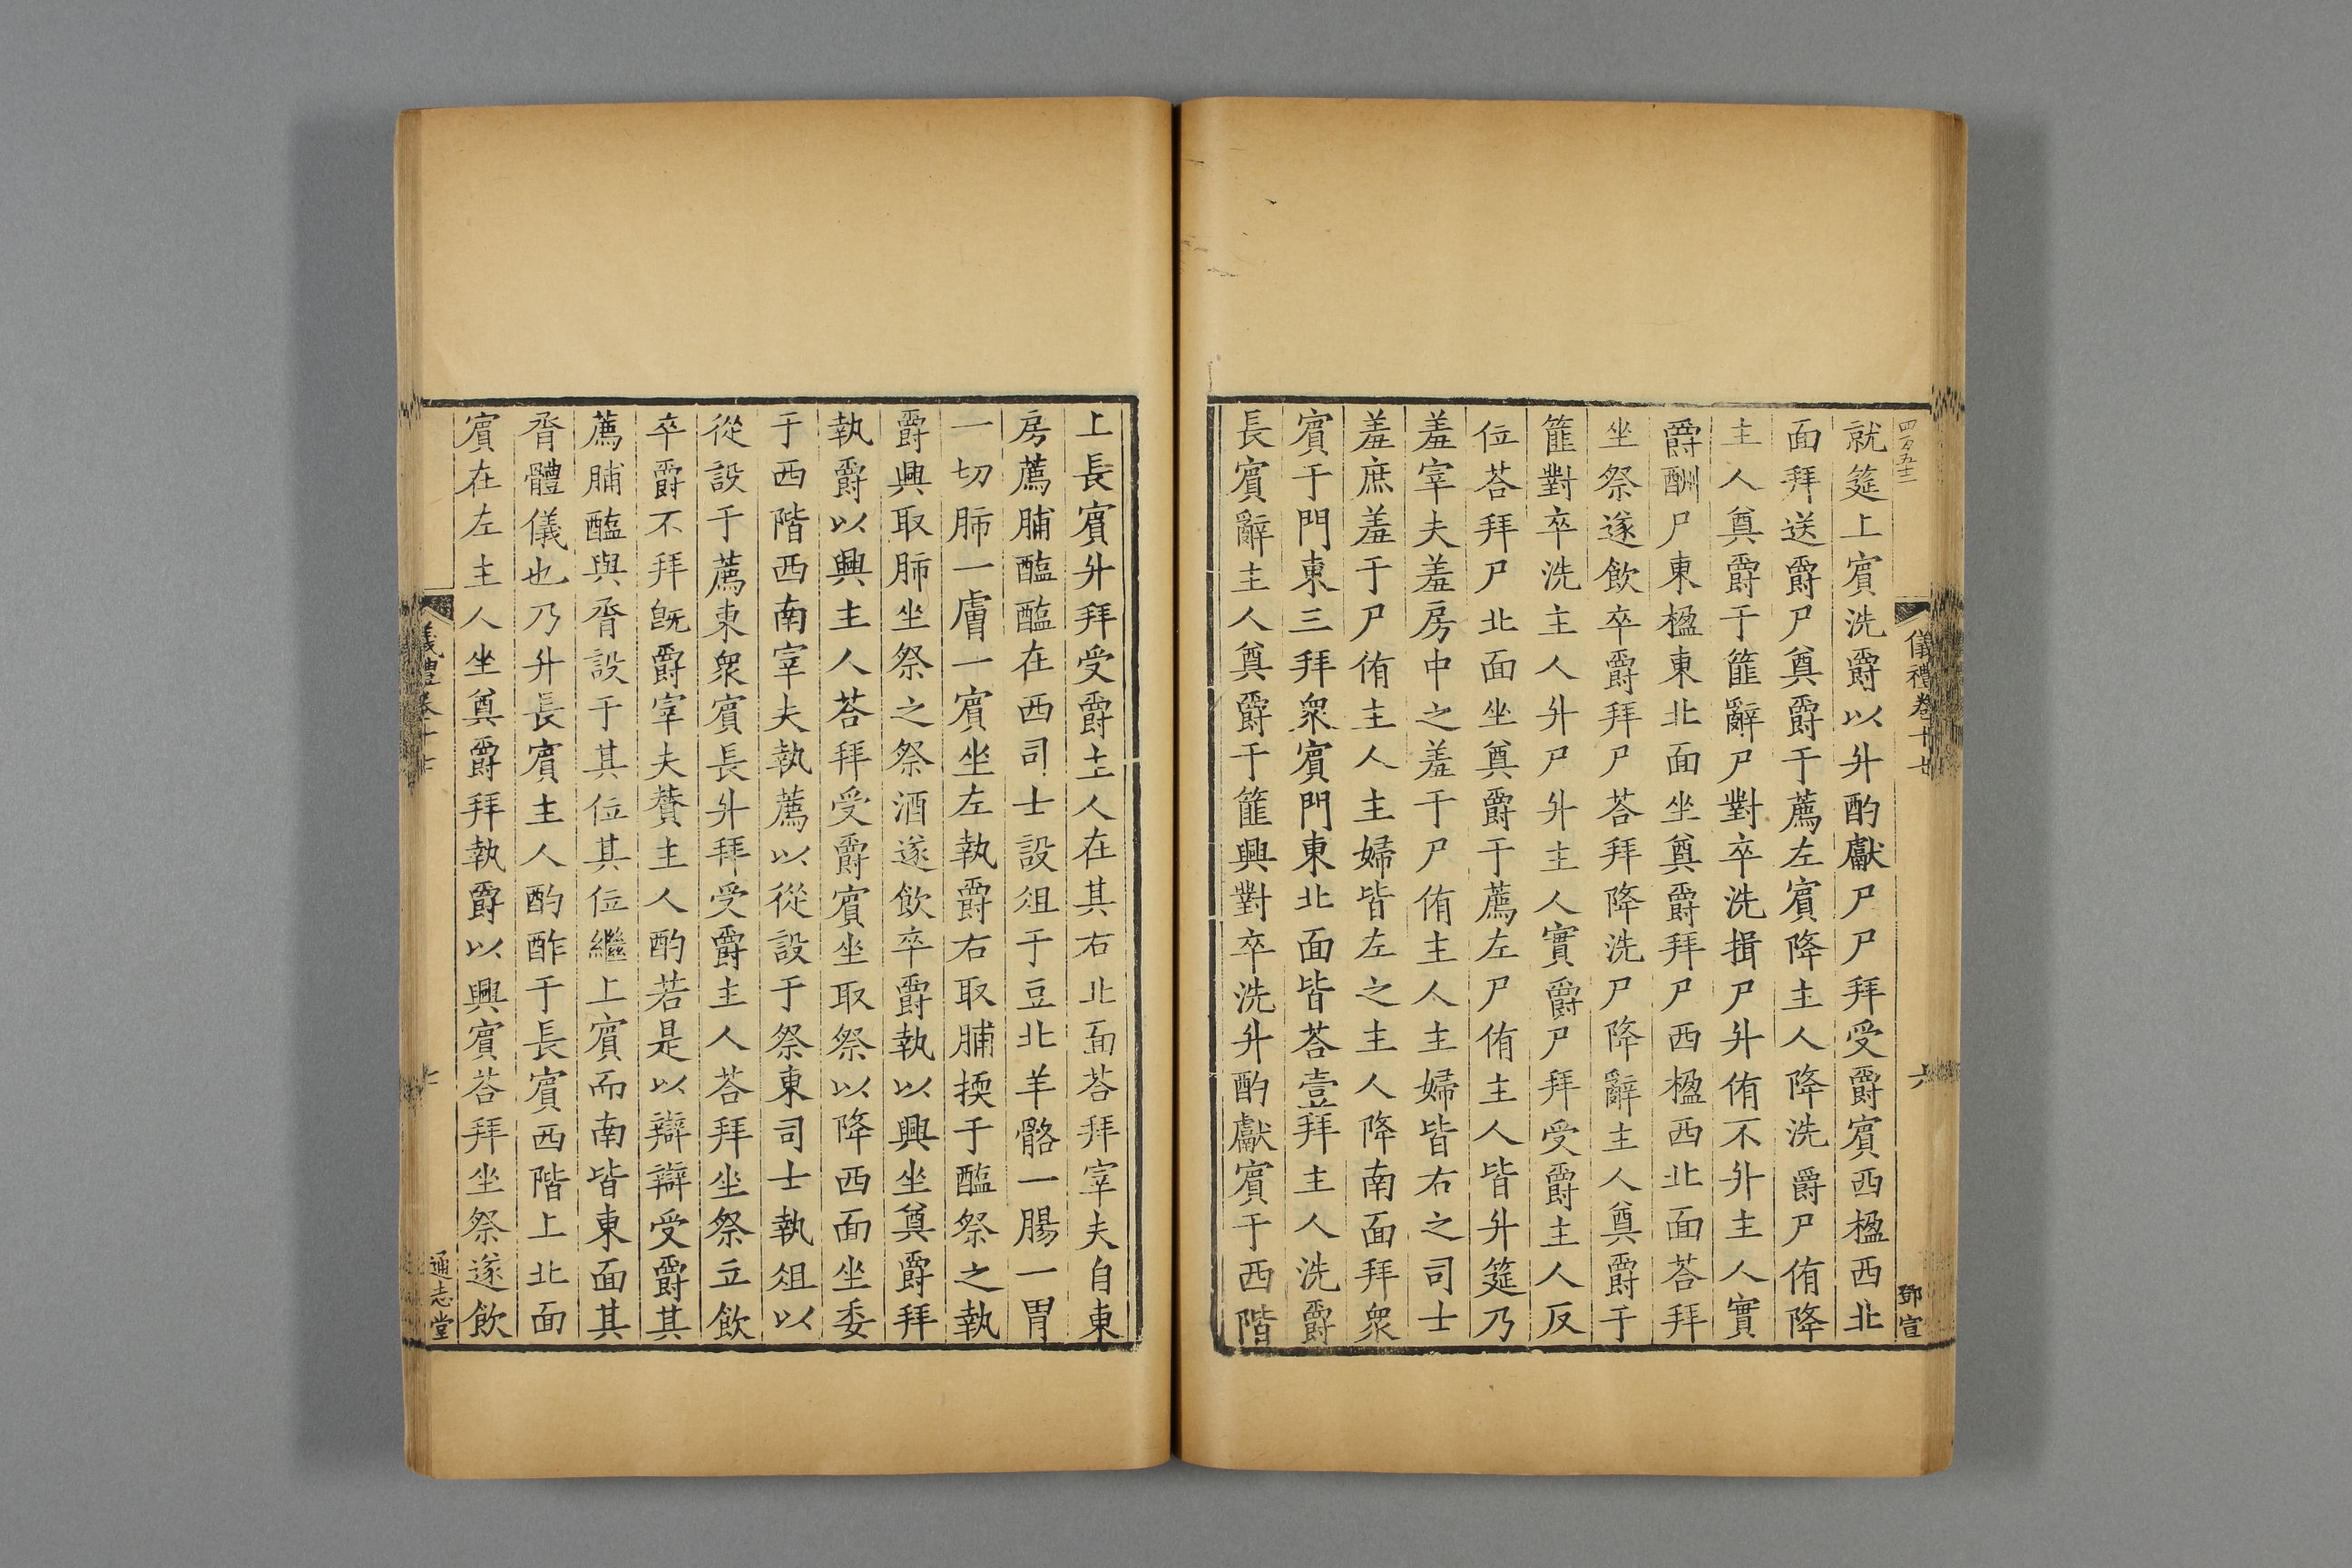 四百五十二
儀禮卷十七
六
鄧宣
就筵上賓洗爵以升酌獻尸尸拜受爵賓西楹西北
面拜送爵尸奠爵于薦左賓降主人降洗爵尸侑降
主人奠爵于篚辭尸對卒洗揖尸升侑不升主人實
爵酬尸東楹東北面坐奠爵拜尸西楹西北面荅拜
坐祭遂飲卒爵拜尸荅拜降洗尸降辭主人奠爵于
篚對卒洗主人升尸升主人實爵尸拜受爵主人反
位荅拜尸北面坐奠爵于薦左尸侑主人皆升筵乃
羞宰夫羞房中之羞于尸侑主人主婦皆右之司士
羞庶羞于尸侑主人主婦皆左之主人降南面拜衆
賓于門東三拜衆賓門東北面皆荅壹拜主人洗爵
長賓辭主人奠爵于篚興對卒洗升酌獻賓于西階
上長賓升拜受爵主人在其右北面荅拜宰夫自東
房薦脯醢醢在西司士設俎于豆北羊骼一腸一胃
一切肺一膚一賓坐左執爵右取脯擩于醢祭之執
爵興取肺坐祭之祭酒遂飲卒爵執以興坐奠爵拜
執爵以興主人荅拜受爵賓坐取祭以降西面坐委
于西階西南宰夫執薦以從設于祭東司士執俎以
從設于薦東衆賓長升拜受爵主人荅拜坐祭立飲
卒爵不拜旣爵宰夫贊主人酌若是以辯辯受爵其
薦脯醢與脀設于其位其位繼上賓而南皆東面其
脀體儀也乃升長賓主人酌酢于長賓西階上北面
賓在左主人坐奠爵拜執爵以興賓荅拜坐祭遂飲
儀禮卷十七
七
通志堂